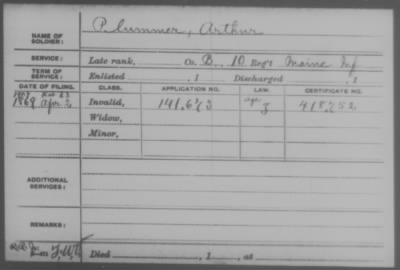 NAME OF SOLDIER: Plummer, Arthur
SERVICE: Late rank, Co. B, 10 Reg't Maine Inf
TERM OF SERVICE: Enlisted , 1 Discharged , 1
DATE OF FILING. CLASS. APPLICATION NO. LAW. CERTIFICATE NO.
1869 Apr. 2 Invalid, 141,673 418,752
Widow,
Minor,
ADDITIONAL SERVICES:
REMARKS:
Died , 1 , at